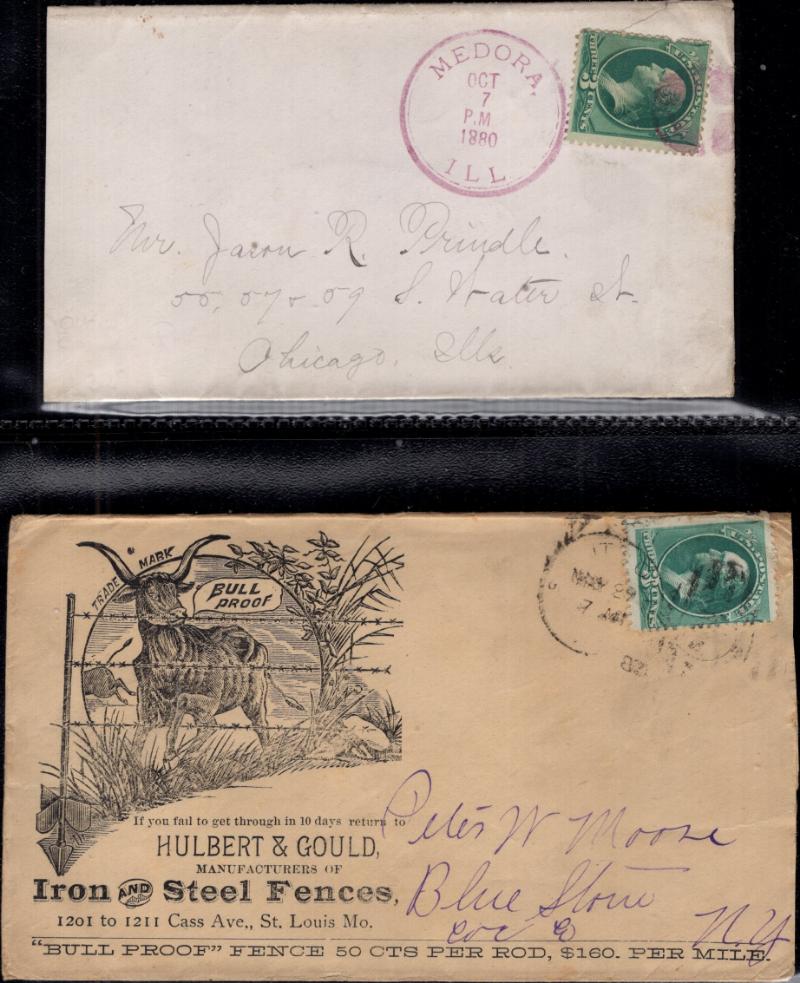 MEDORA,
OCT
7
P.M.
1880
ILL
THREE 3 CENTS
Mr. Jason R. Prindle.
55, 57 & 59 S. Water St.
Chicago. Ills.
TRADE MARK
BULL
PROOF
MAY 29
7 AM
THREE 3 CENTS
If you fail to get through in 10 days return to
HULBERT & GOULD,
MANUFACTURERS OF
Iron AND Steel Fences,
1201 to 1211 Cass Ave., St. Louis Mo.
"BULL PROOF" FENCE 50 CTS PER ROD, $160. PER MILE.
Peter W Moose
Blue Store
N.Y